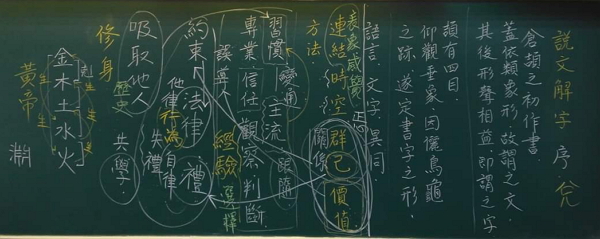 說文解字 序 兌
倉頡之初作書
蓋依類象形,故謂之文.
其後形聲相益,即謂之字
頡有四目.
仰觀垂象.因儷鳥龜
之跡.遂定書字之形.
誥言.文字.異同
表象感覺
連結時空群己價值
方法:
關係
習慣變通主流
跟隨
專業信仕觀察判斷
誤導人 經驗選擇
約束法律禮
他律行為自律
吸取他人 失禮
歷史 失學
修身
金木土水火
生生生生
剋
黃帝
淵